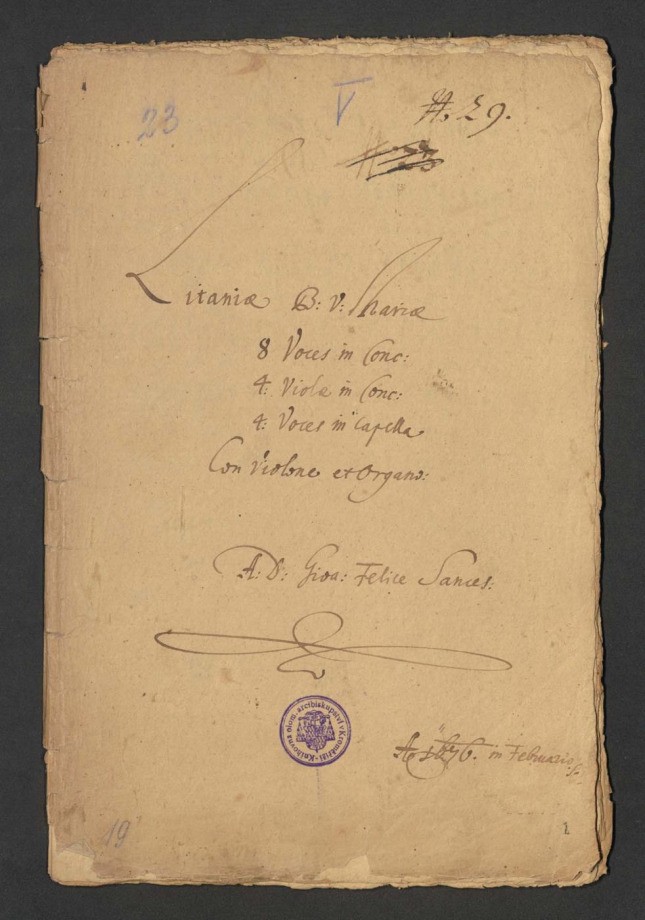 23
V
N. 29.
Litaniæ B: V: Mariæ
8 Voces in Conc:
4: Violæ in Conc:
4: Voces in Capella
Con Violone et Organo:
A: D: Gioa: Felice Sances:
Knihovna olom. arcibiskupství v Kroměříži
A. 1676. in Februario
19
1